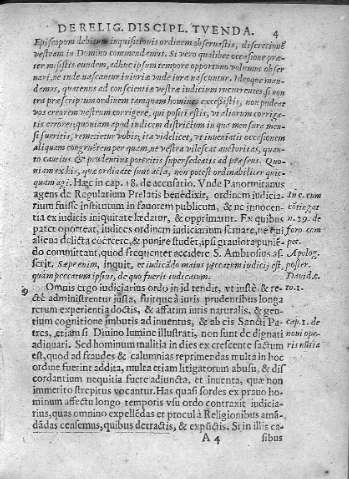 DE RELIG. DISCIPL. TVENDA. 4
Episcopum debitum inquisitionis ordinem obseruastis, discretionē
vestram in Domino commendamus. Si vero qualibet occasione præ-
termisistis eundem, adhuc ipsum tempore opportuno volumus obser
uari, ne inde nascantur iniuriæ vnde iura nascuntur. Ideoque man-
damus, quatenus ad conscientiæ vestræ iudicium recurrentes, si con
tra præscriptum ordinem tanquam homines excessistis, non pudeat
vos errorem vestrum corrigere, qui positi estis, vt aliorum corriga-
tis errores: quoniam apud iudicem districtum in qua mensura men-
si fueritis, remetietur vobis, ita videlicet, vt innocētiæ occasionem
aliquam congruē semper quam, ne vestra vilescat auctoritas, quan-
to cautius, & prudentius poteritis supersedeatis ad præsens. Quo-
niam ex his, quæ ordinate sunt acta, non potest ordinabiliter quic-
quam agi. Hæc in cap. 18. de accusatio. Vnde Panormitanus
agens de Regularium Prelatis benedixit, ordinem iudicia-
rium fuisse institutum in fauorem publicum, & ne innocen-
tia ex iudicis iniquitate lædatur, & opprimatur. Ex quibus
patet oportere, iudices ordinem iudicinium seruare, ne qui
aliena delicta coërcere, & punire student, ipsi grauiora punie-
do committant, quod frequenter accidere S. Ambrosius as-
serit. Sæpe enim, inquit, et iudicādo maius peccatum iudicij est,
quam peccatum ipsum, de quo fuerit iudicatum.
in c. cum
n. 29. de
foro com
Apolog.
poster.
Dauid. c.
to. 1.
9 Omnis ergo iudiciarius ordo in id tendit, vt iustè, & re-
ctè administrentur iusta, fuitque à iuris prudentibus longa
rerum experientia doctis, & affatim iuris naturalis, & gen-
tium cognitione imbutis adinuentus, & ab eis Sancti Pa-
tres, etiam si Diuino lumine illustrati, non sunt de dignati
adiuuari. Sed hominum malitia in dies excrescente factum
est, quod ad fraudes & calumnias reprimendas multa in hoc
ordine fuerint addita, multa etiam litigatorum abusu, & dis
cordantium nequitia fuere adiuncta, et inuenta, quæ non
immerito strepitus vocantur. Has quas sordes ex prauo ho-
minum affectu longo temporis vsu ordo contraxit iudicia-
rius, quas omnino expellēdas et procul à Religionibus amā-
dādas censemus, quibus detractis, & expūctis. Si in illis ca-
cap. 1. de
A 4 sibus